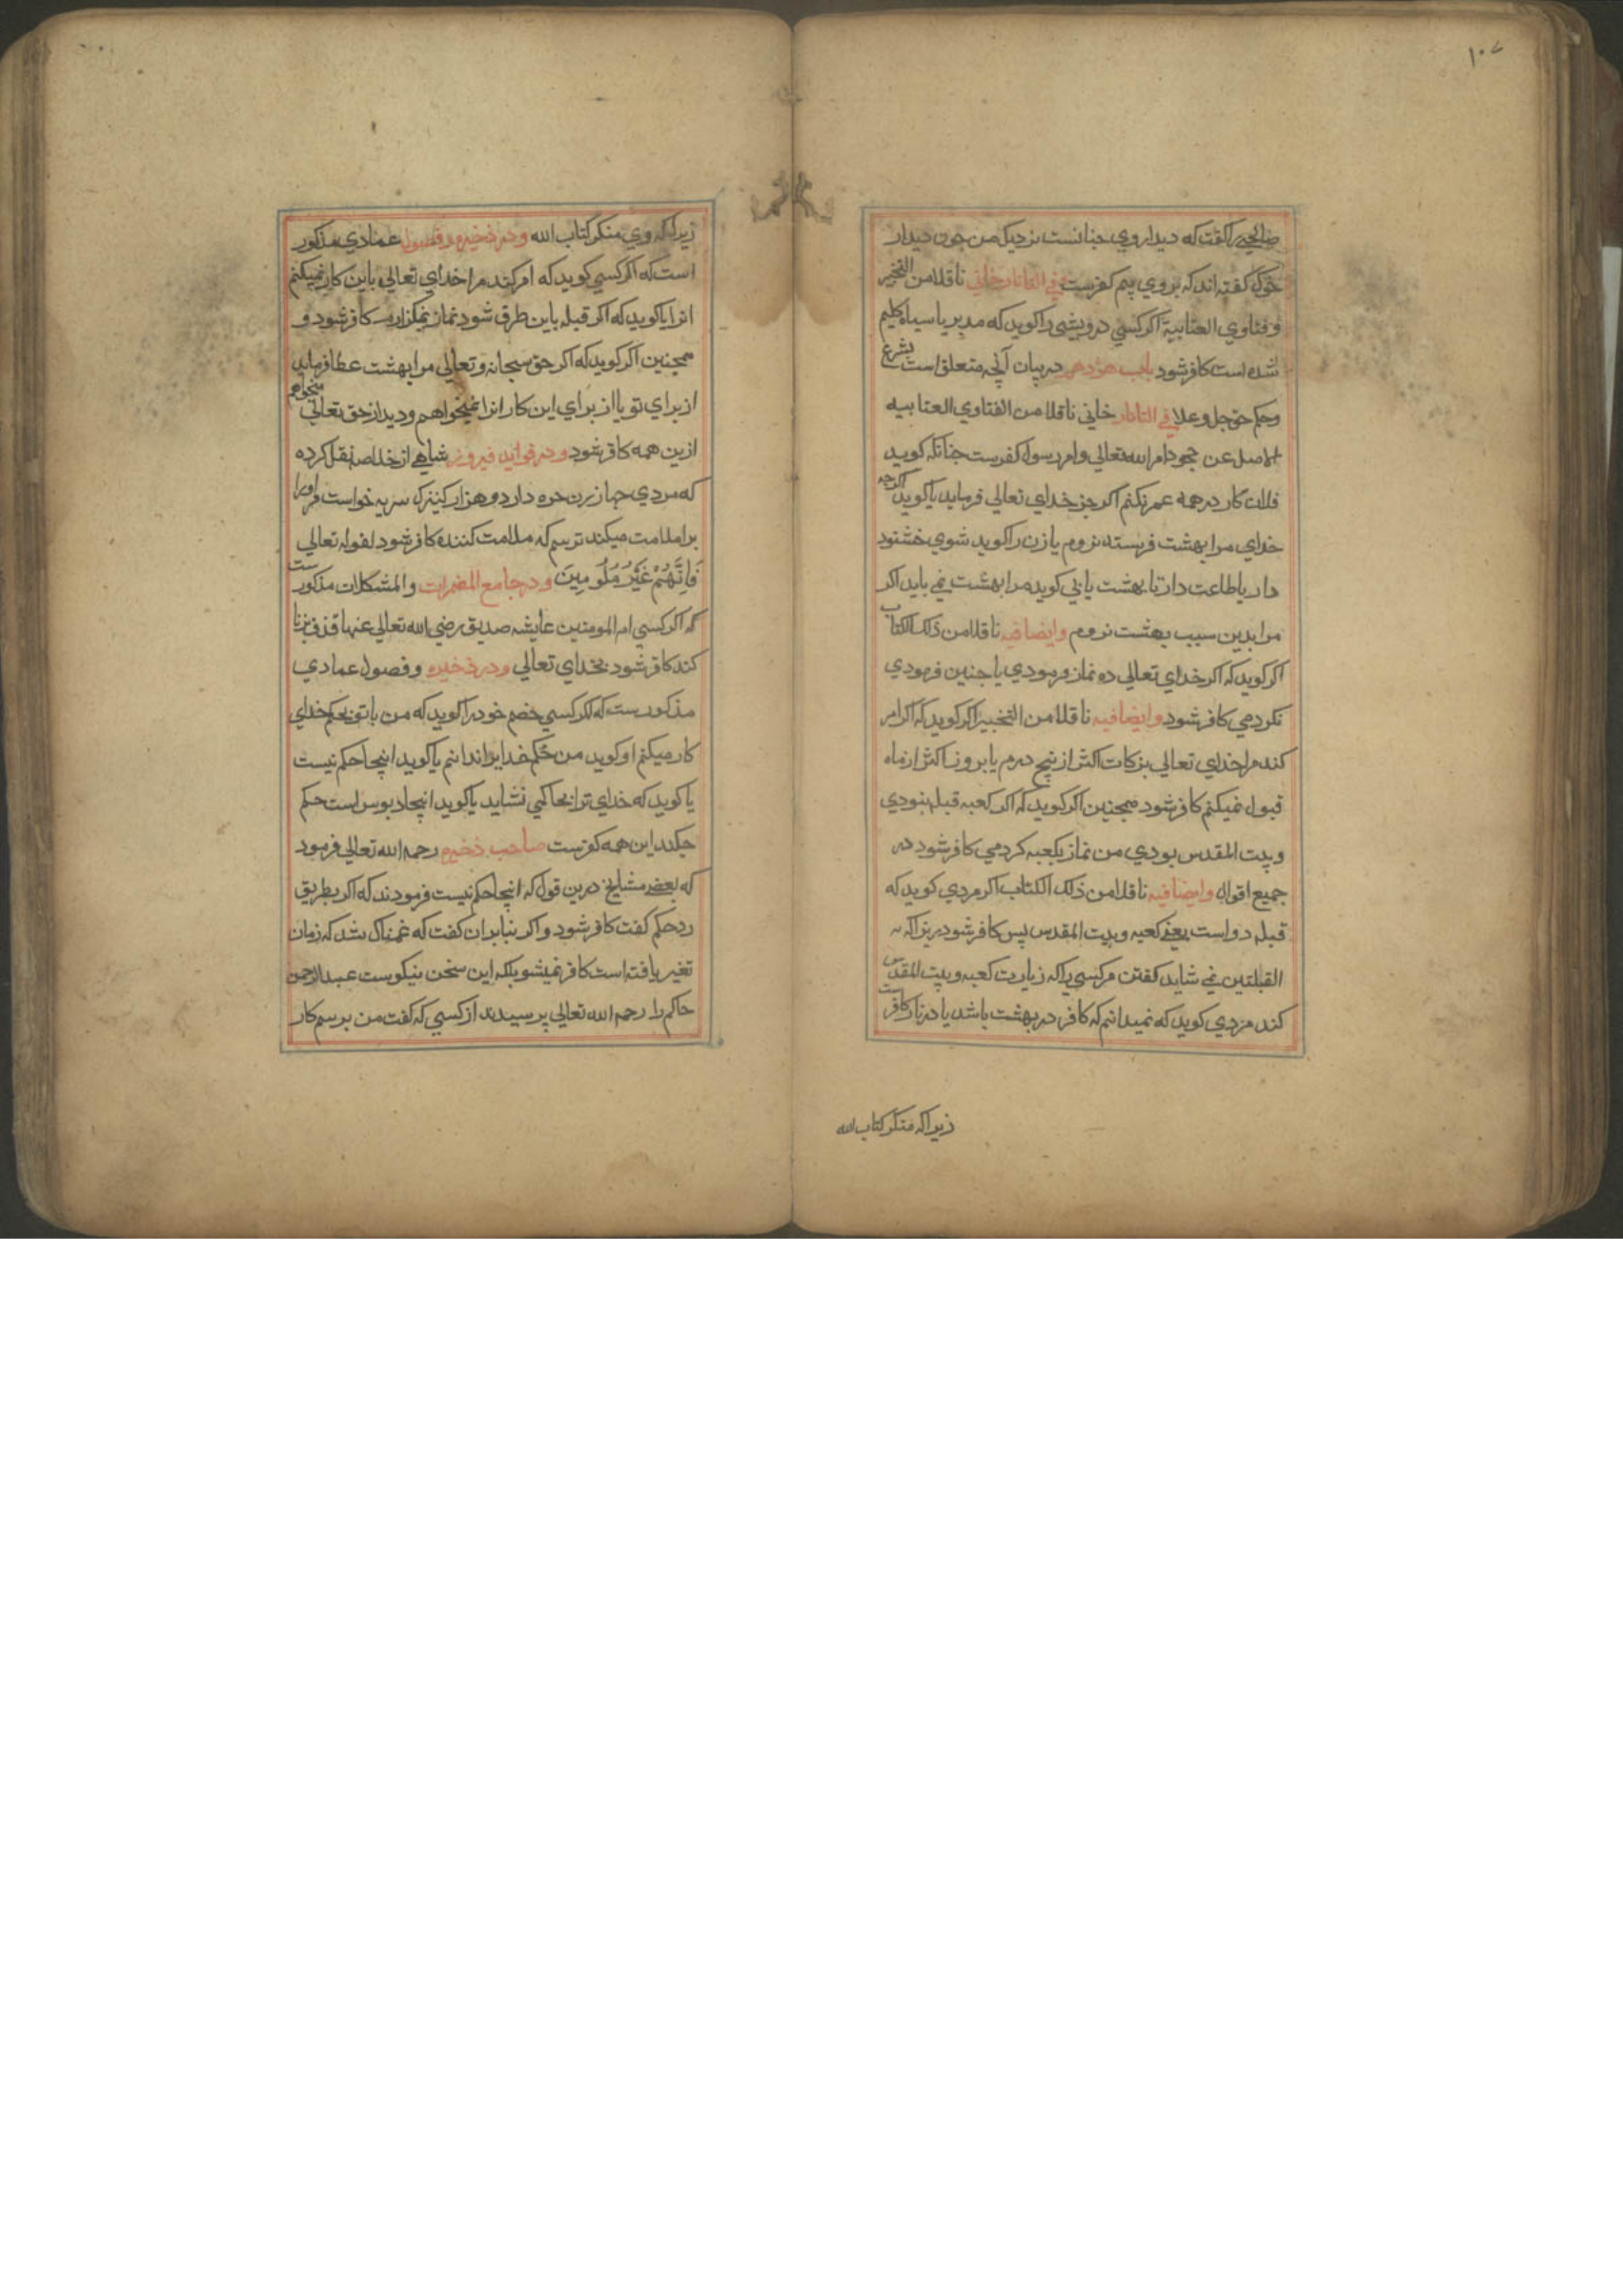 ۱۰۷
صالحی را گفت که دیدار وی چنانست نزدیک من چون دیدار
خوک گفته اند که بروی بیم کفرست فی التاتار خانی ناقلا من التخیر
و فتاوی العتابیة اگر کسی درویشی را کوید که مدبر یا سیاه کلیم
شده است کافر شود باب هژدهم در بیان آنچه متعلق است بشرع
و حکم حق جل و علا فی التاتار خانی ناقلا من الفتاوی العتابیه
الاصل عن جحود امر الله تعالی و امر رسول کفرست چنانکه کوید
فلان کار در همه عمر نکنم اکر جز خدای تعالی فرماید یا کوید اکرچه
خدای مرا بهشت فرستد نروم یا زن را کوید شوی خشنود
دار یا طاعت دار تا بهشت یابی کوید مرا بهشت نمی باید اکر
مرا بدین سبب بهشت نروم وایضا فیه ناقلا من ذلک الکتاب
اکر کوید که اکر خدای تعالی ده نماز فرمودی یا چنین فرمودی
نکردمی کافر شود وایضا فیه ناقلا من التخییر اکر کوید که اکر امر
کند مرا خدای تعالی بزکات اکثر از پنج درم یا بروزه اکثر از ماه
قبول نمیکنم کافر شود همچنین اکر کوید که اکر کعبه قبله نبودی
و بیت المقدس بودی من نماز بکعبه کردمی کافر شود در
جمیع اقوال وایضا فیه ناقلا من ذلک الکتاب اکر مردی کوید که
قبله دو است یعنی کعبه و بیت المقدس پس کافر شود زیراکه
القبلتین نمی شاید کفتن مر کسی را که زیارت کعبه و بیت المقدس
کند مردی کوید که نمیدانم که کافر در بهشت باشد یا در نار کافر ست
زیراکه منکر کتاب الله
زیراکه وی منکر کتاب الله و در ذخیره و فصول عمادی مذکور
است که اکر کسی کوید که امر کند مرا خدای تعالی باین کار نمیکنم
انرا یا کوید که اکر قبله باین طرف شود نماز نمیکزارم کافر شود و
همچنین اکر کوید که اکر حق سبحانه و تعالی مرا بهشت عطا فرماید
از برای تو یا از برای این کار انرا نمیخواهم و دیدار حق تعالی میخواهم
ازین همه کافر شود و در فواید فیروز شاهی از خلاصه نقل کرده
که مردی چهار زن حره دارد و هزار کنیزک سریه خواست مر او را
برا ملامت میکند ترسم که ملامت کننده کافر شود لقوله تعالی
فَاِنَّهُمْ غَیْرُ مَلُومِینَ و در جامع المضمرات و المشکلات مذکور ست
که اکر کسی ام المومنین عایشه صدیق رضی الله تعالی عنها قذف بزنا
کند کافر شود بخدای تعالی و در ذخیره و فصول عمادی
مذکورست که اکر کسی خصم خود را کوید که من با تو بحکم خدای
کار میکنم او کوید من حکم خدایرا ندانم یا کوید اینجا حکم نیست
یا کوید که خدای ترا بحاکمی نشاید یا کوید اینجا دبوس است حکم
چکند این همه کفرست صاحب ذخیره رحمه الله تعالی فرمود
که بعضی مشایخ درین قول که اینجا حکم نیست فرمودند که اکر بطریق
رد حکم کفت کافر شود و اکر بنابران کفت که غمناک شد که زمان
تغیر یافته است کافر نمیشود بلکه این سخن نیکوست عبد الرحمن
حاکم را رحمه الله تعالی پرسیدند از کسی که کفت من برسم کار